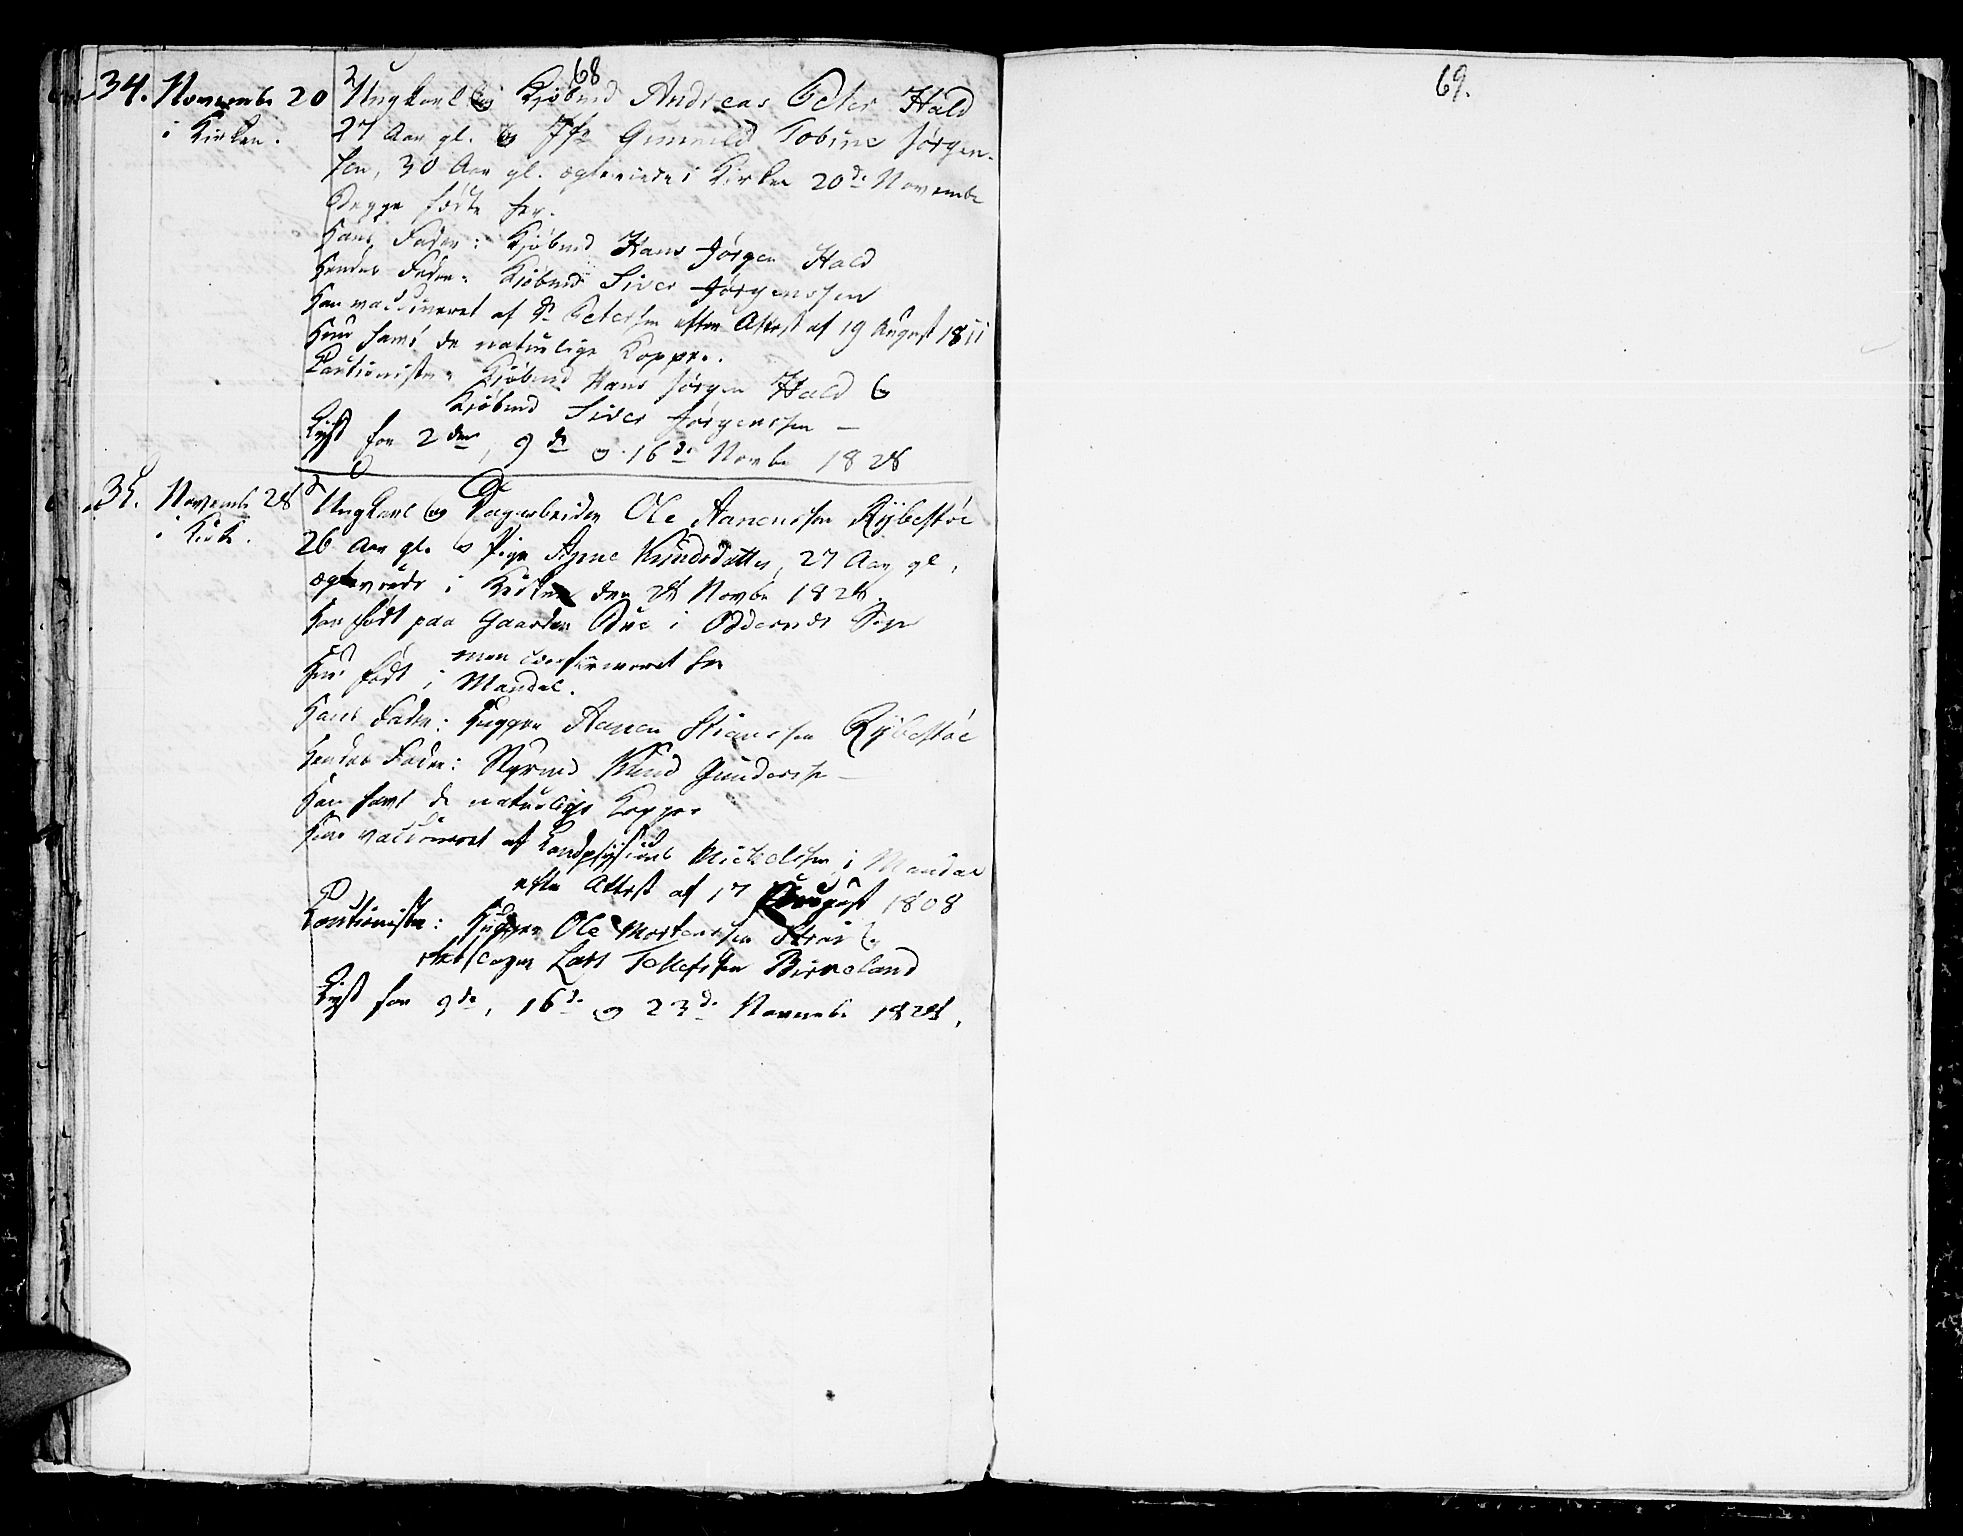 68
34. Novembr 20 Ungkarl og Kjøbmd Andreas Peter Hald
i Kirken. 27 Aar gl. og Jfr Gunnild Tobine Jørgen-
sen, 30 Aar gl. ægteviede i Kirken 20de Novembr
Begge fødte her.
Hans Fader: Kjøbmd Hans Jørgen Hald
Hendes Fader: Kjøbmd Siver Jørgenssen
Han vaccineret af Dr Petersen efter Attest af 19 August 1811
Hun havt de naturlige Kopper.
Cautionister: Kjøbmd Hans Jørgen Hald og
Kjøbmd Siver Jørgenssen –
Lyst for 2den, 9de og 16de Novbr 1828
35. Novembr 28 Ungkarl og Dagarbeider Ole Aanenssen Rybestøe
i Kirke. 26 Aar gl. og Pige Anne Knudsdatter, 27 Aar gl,
ægteviede i Kirken den 28 Novbr 1828.
Han født paa Gaarden Due i Oddernes Sogn
men confirmeret her
Hun født i Mandal.
Hans Fader: Aanen Stianssen Rybestøe
Hendes Fader: Styrmd Knud Gunderssen –
Han havt de naturlige Kopper
Hun vaccineret af Landphysicus Michelssen i Mandal
efter Attest af 17 August 1808
Cautionister: Ole Mortenssen Strai og
Lars Tellefssen Birkeland
Lyst for 9de, 16de og 23de Novembr 1828.
69.